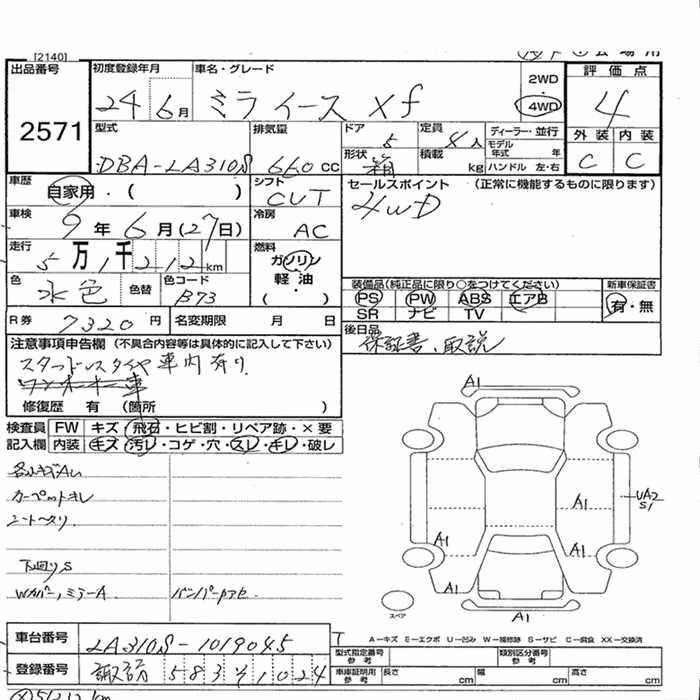 [2140]
出品番号 初度登録年月 車名・グレード 2WD 評価点
2571 24年6月 ミライース Xf 4WD 4
型式 排気量 ドア 定員 ディーラー・並行 外装 内装
DBA-LA310S 660cc 5 4人 モデル年式 年 C C
形状 箱 積載 kg ハンドル 左・右
車歴 自家用・( ) シフト セールスポイント (正常に機能するものに限ります)
CVT 4WD
車検 9年6月(27日) 冷房 AC
走行 5万1千212km 燃料 ガソリン 軽油 ・( )
色 水色 色替 色コード B73
装備品(純正品に限り○をつけてください) 新車保証書
PS PW ABS エアB 有・無
SR ナビ TV
R券 7320円 名変期限 月 日 後日品
保証書、取説
注意事項申告欄 (不具合内容等は具体的に記入して下さい)
スタッドレスタイヤ車内有り
修復歴 有 (箇所 )
検査員 FW キズ・飛石・ヒビ割・リペア跡・×要
記入欄 内装 キズ・汚レ・コゲ・穴・スレ・キレ・破レ
カーペットキレ
下回りS
Wカバー、ミラーA
A1
A1
UA2
S1
A1
A1
A1
A1
スペア
A1
A-キズ E-エクボ U-凹み W-補修跡 S-サビ C-腐食 XX-交換済
車台番号 LA310S-1019045
型式指定番号 参考 類別区分番号 参考
登録番号 諏訪 583 1024
車庫証明用 参考 長さ cm 幅 cm 高さ cm